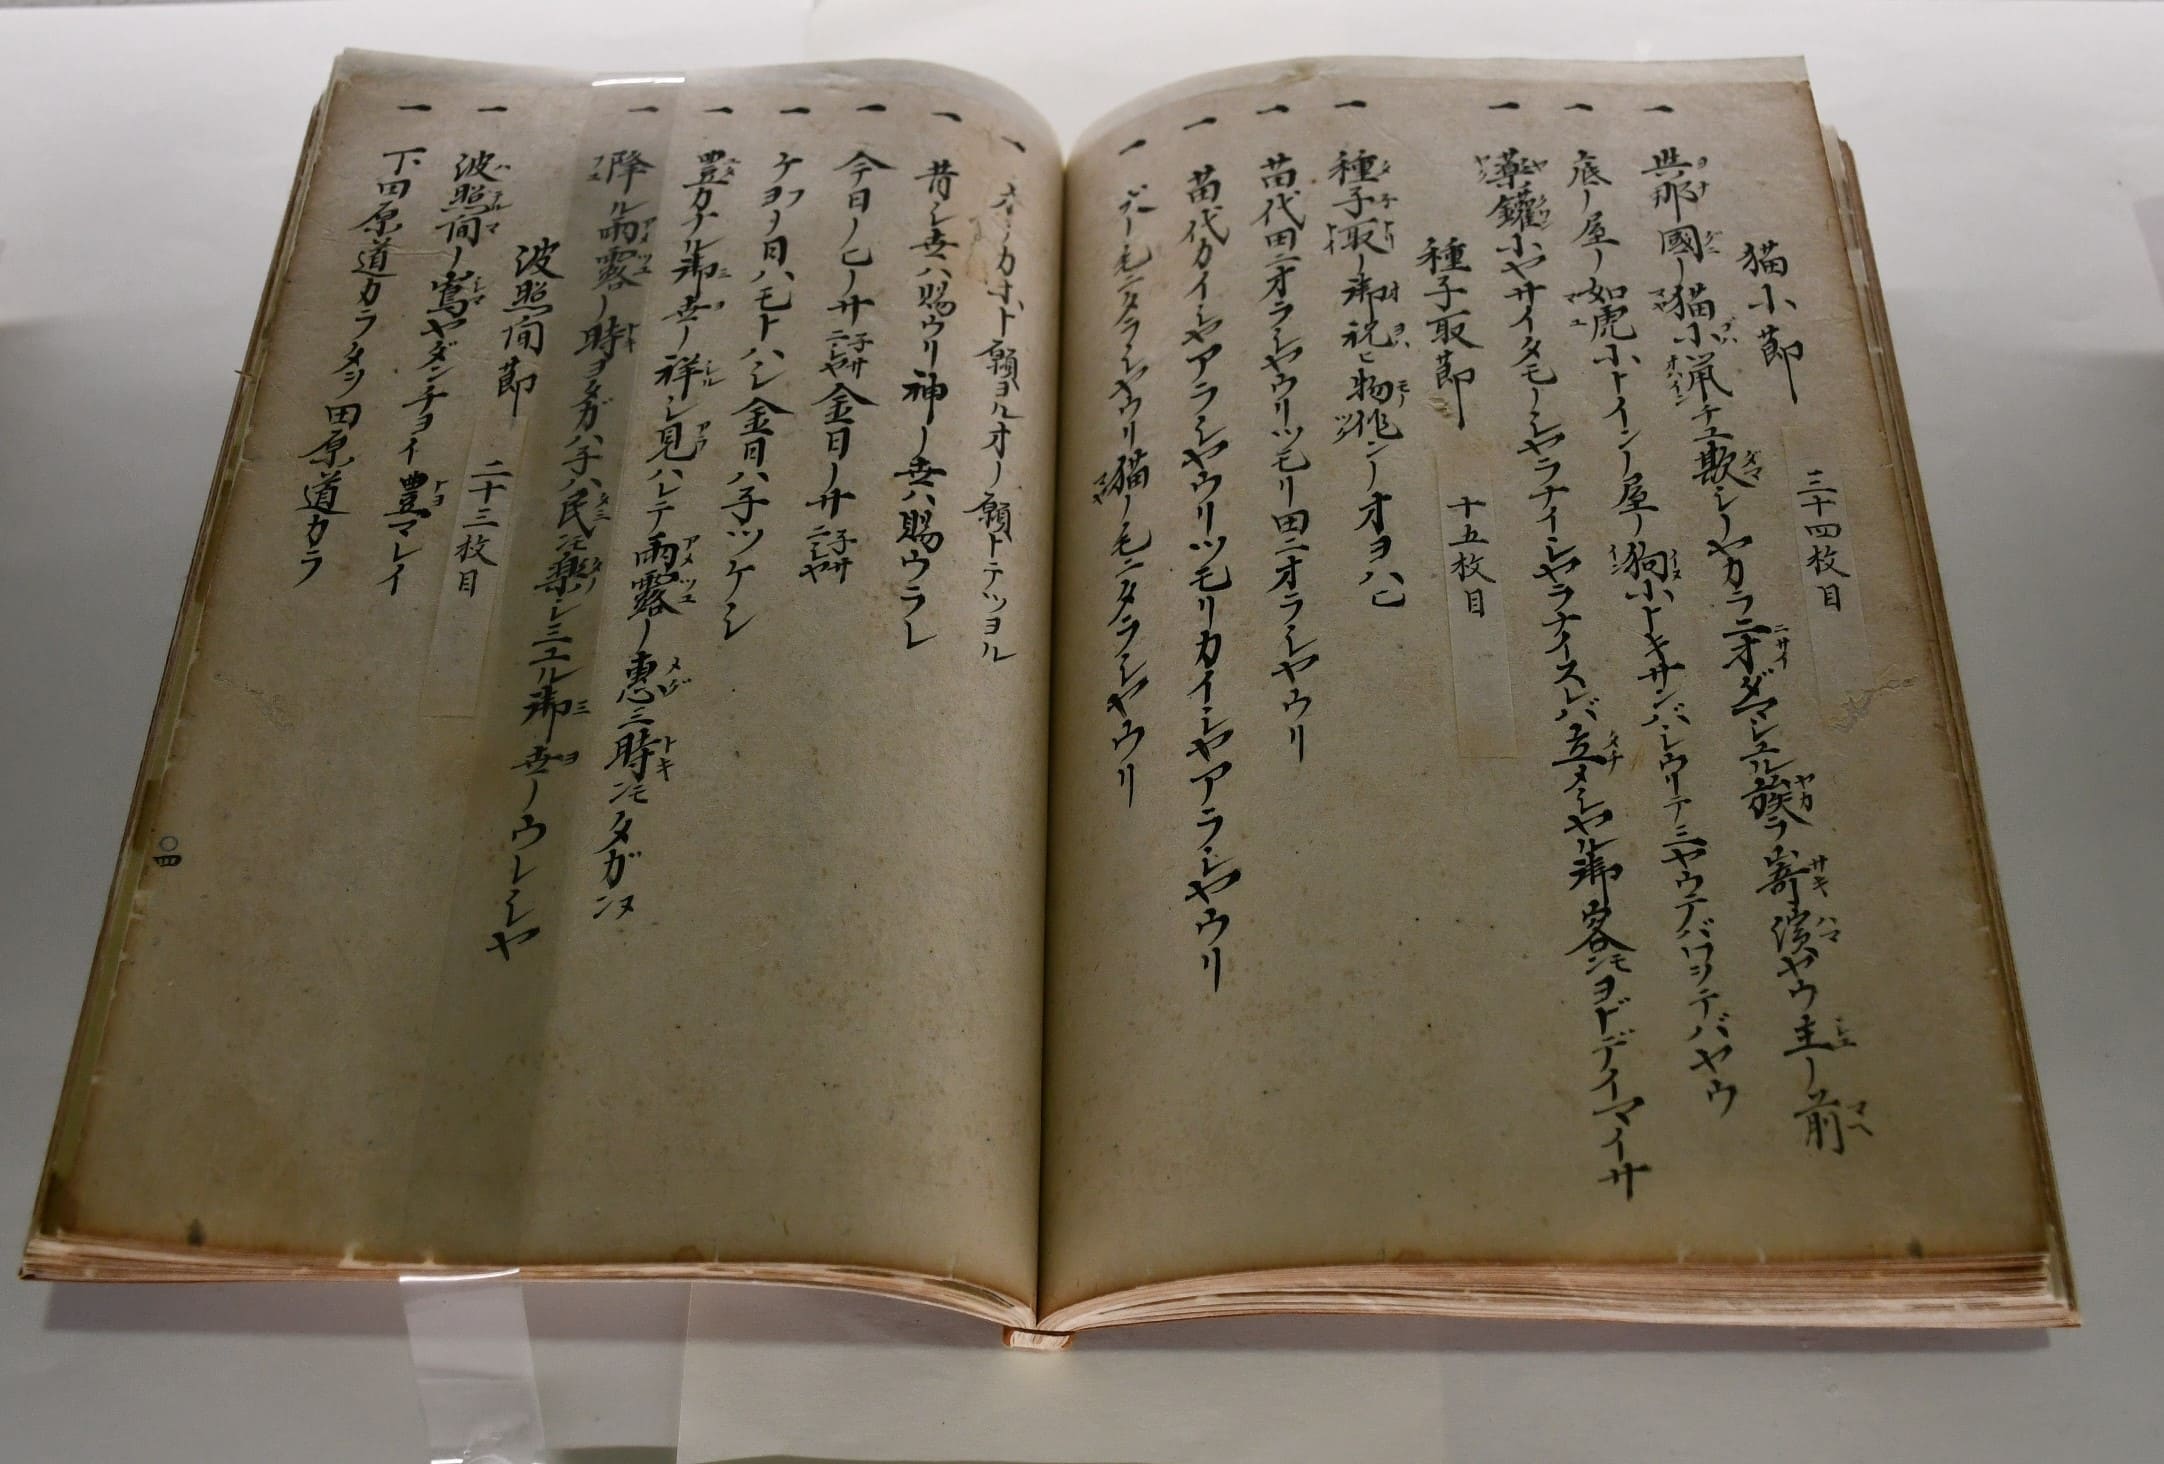 猫小節 三十四枚目
一 與那國ノ猫小鼡チユ欺シノヤカラニオダマシユル族ラ嵜濱ヤウ主ノ前
一 底ノ屋ノ如虎小トインノ屋ノ狗小トキサンバシウリテミヤウテバワツテバヤウ
一 藥鑵小ヤサイタモーシヤラナイシヤラナイスレバ立メシヤル御客ンモヨドデイマイサ
種子取節 十五枚目
一 種子取ノ御祝ヒ物作ンノオヨハヒ
一 苗代田ニオラシヤウリツモリ田ニオラシヤウリ
一 苗代カイシヤアラシヤウリツモリカイシヤアラシヤウリ
一 ギノ毛ニタラシヤウリ猫ノ毛ニタラシヤウリ
一 カホト願ヨルオノ願トテツヨル
一 昔シ世ハ賜ウリ神ノ世ハ賜ウラレ
一 今日ノヒノサ 金日ノサ
一 ケヨヲ日ハモトハシ金日ハ子ツケシ
一 豊カナル御世ノ祥シ見ハレテ雨露ノ惠ミ時ンモタガンヌ
一 降ル雨露ノ時ヲタガハ子ハ民ンモ楽シミユル御世ノウレシヤ
波照间節 二十三枚目
一 波照间ノ嶌ヤダンチヨイ豊マレイ
一 下田原道カラタツ田原道カラ
〇四